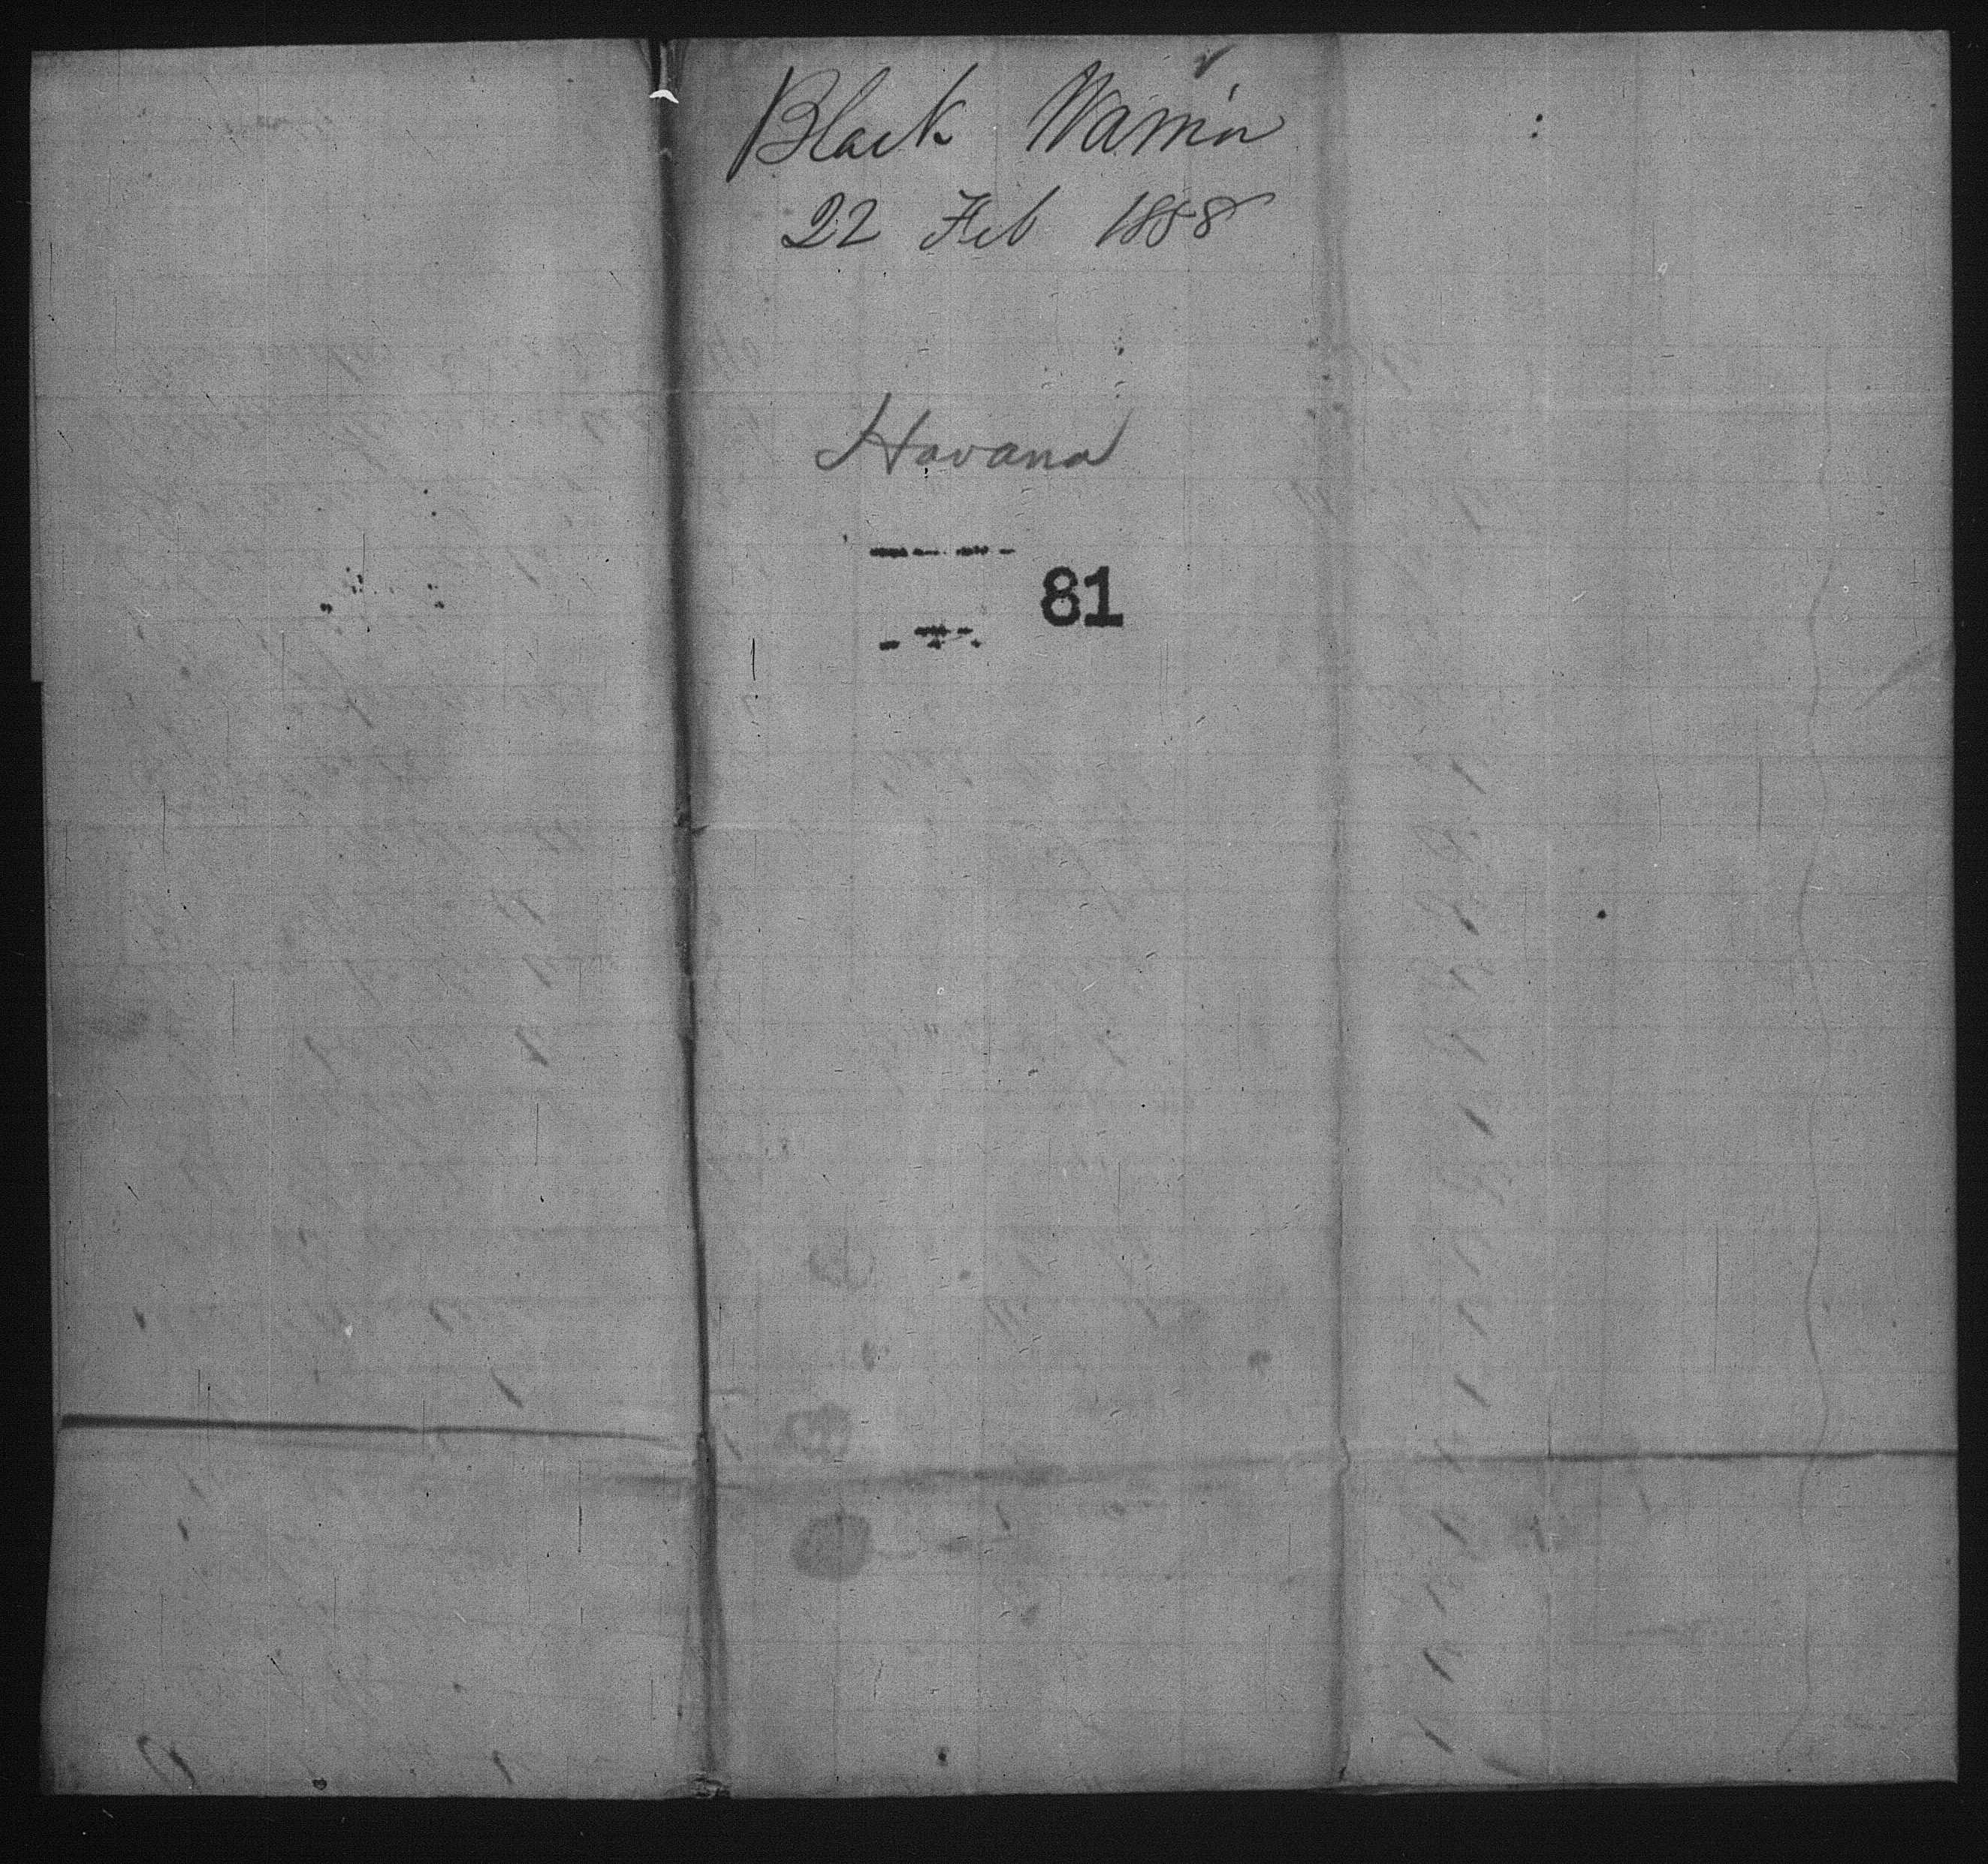 Black Warrior
22 Feb 1858
Havana
81